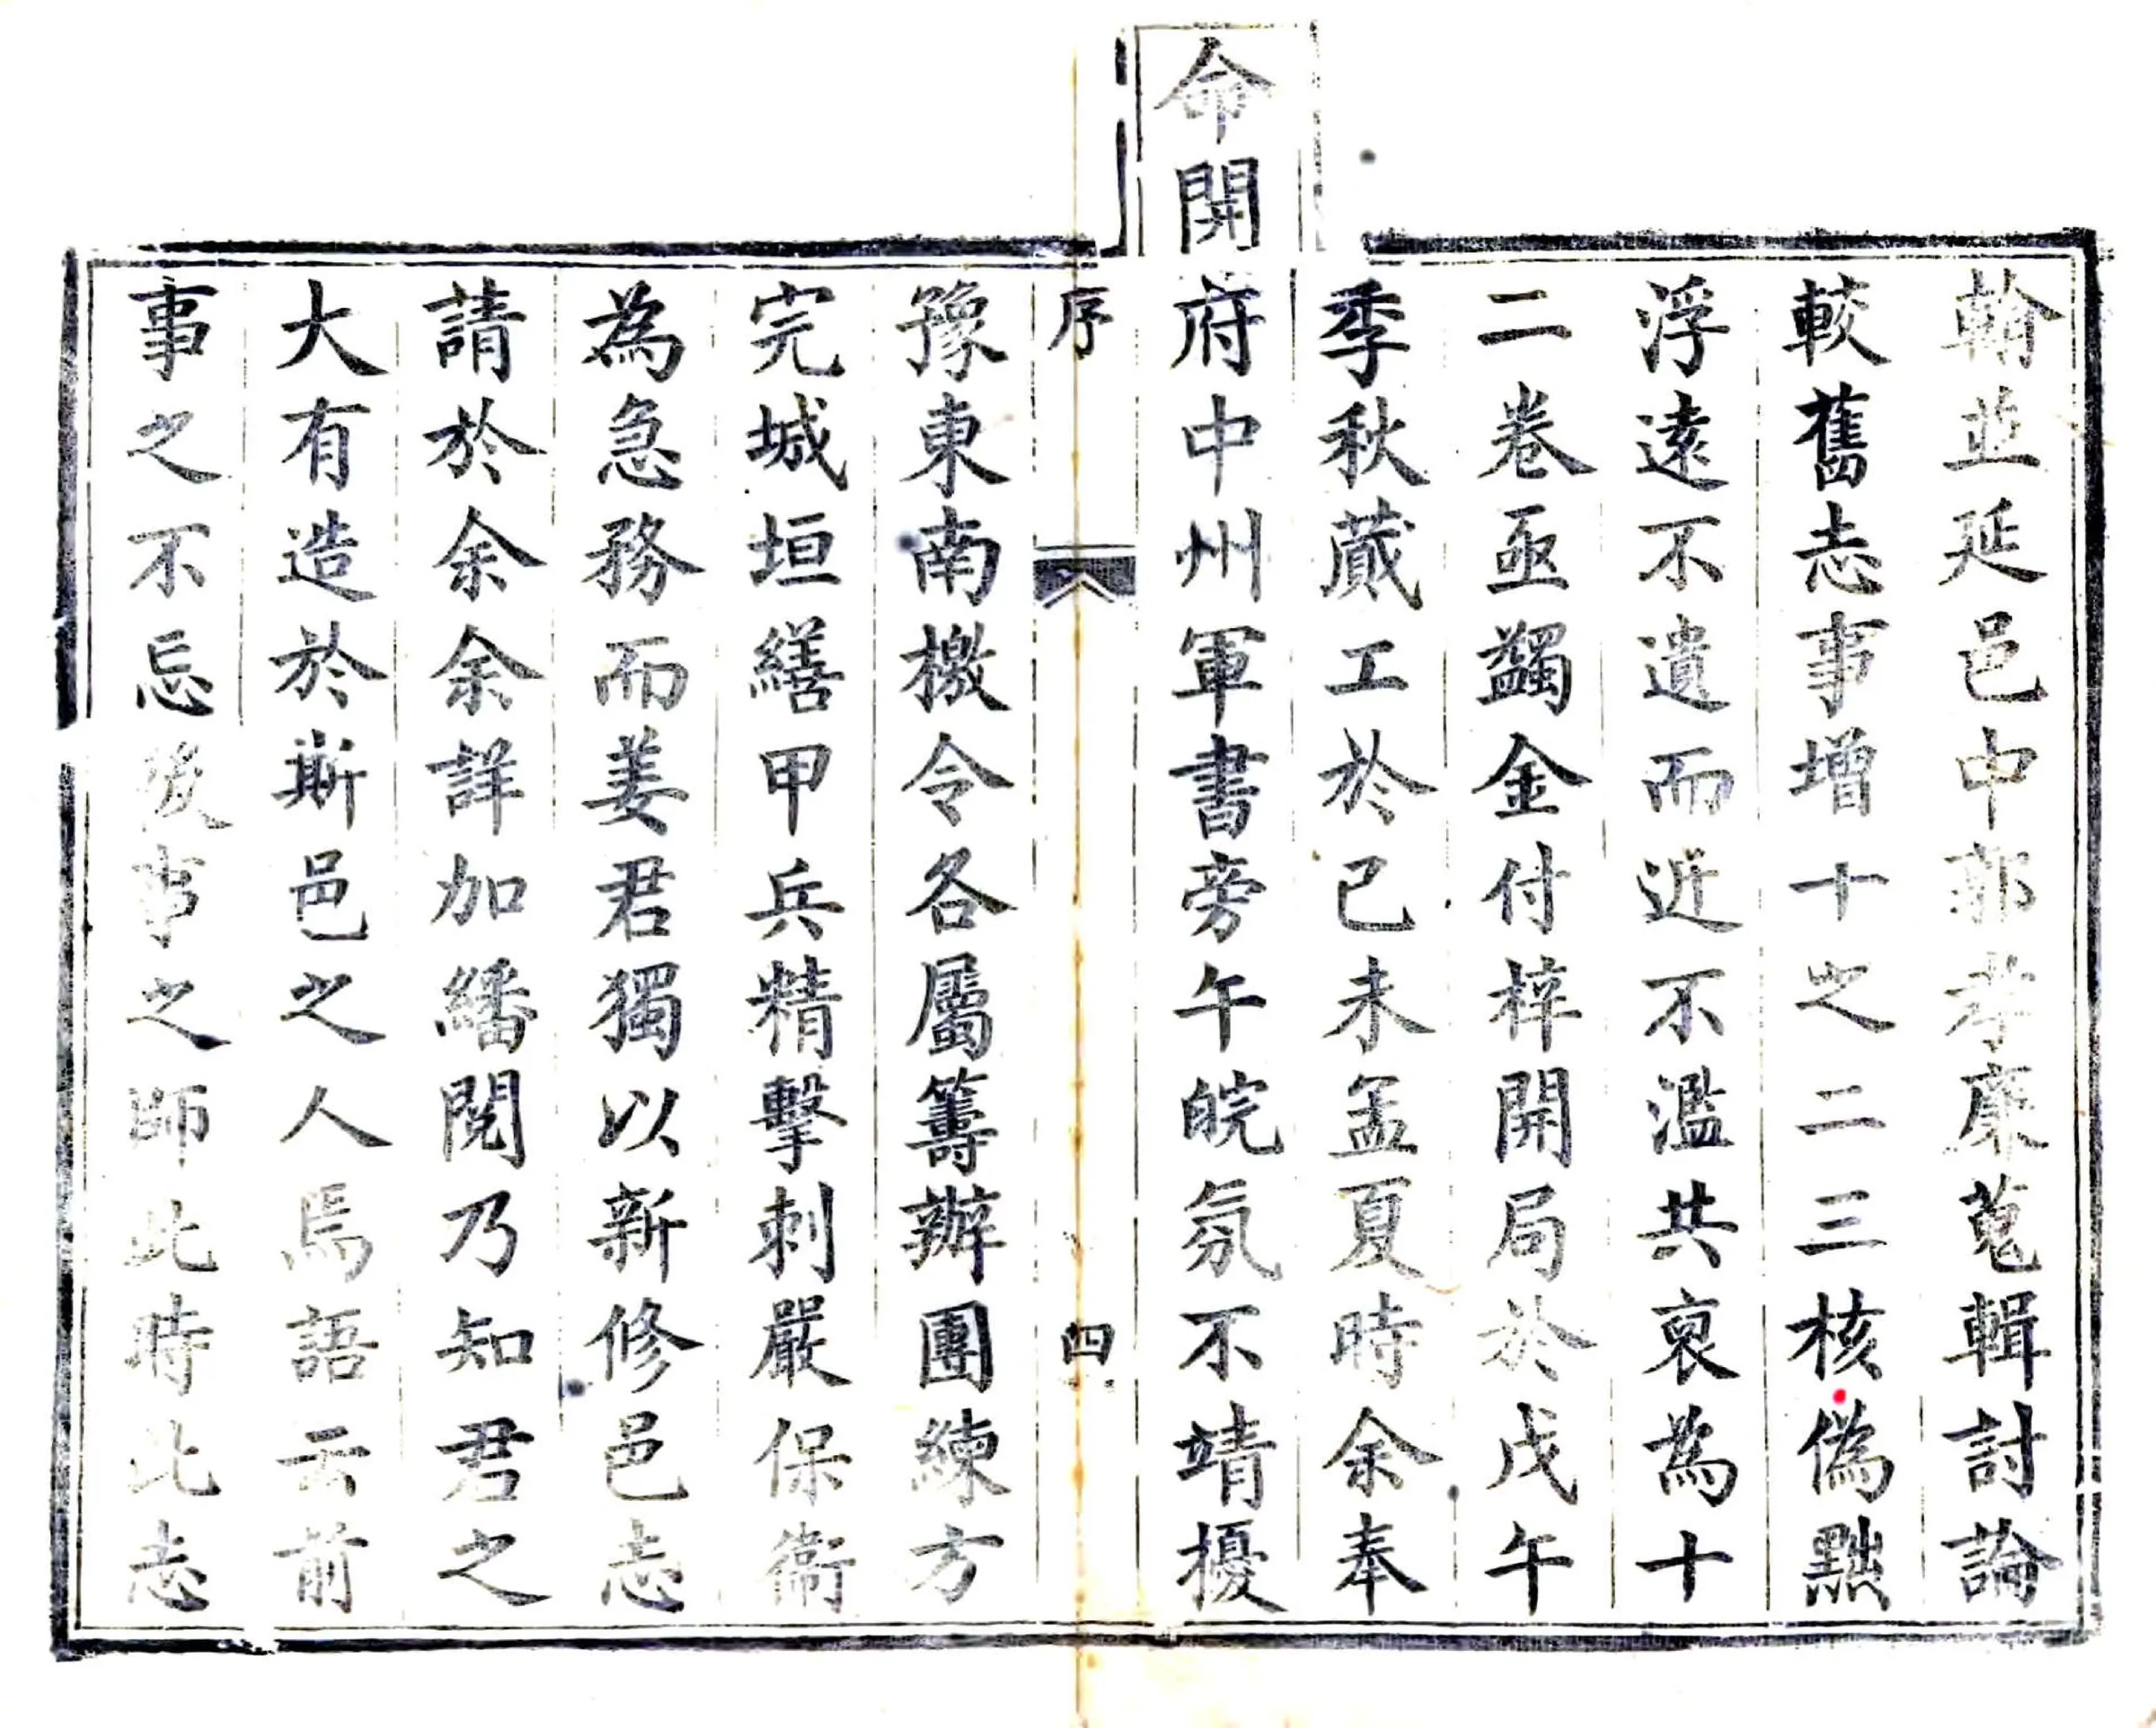 翰並延邑中郭孝廉蒐輯討論
較舊志事增十之二三核偽黜
浮遠不遺而近不濫共裒為十
二卷亟蠲金付梓開局於戊午
季秋蕆工於己未孟夏時余奉
命開府中州軍書旁午皖氛不靖擾
序
四
豫東南檄令各屬籌辦團練方
完城垣繕甲兵精擊刺嚴保衛
為急務而姜君獨以新修邑志
請於余余詳加繙閱乃知君之
大有造於斯邑之人焉語云前
事之不忘後事之師此時此志